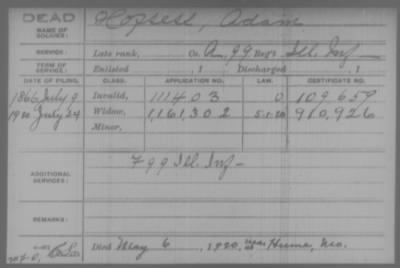 DEAD
NAME OF SOLDIER: Hopsess, Adam
SERVICE: Late rank, Co. A, 99 Reg't Ill. Inf
TERM OF SERVICE: Enlisted , 1 Discharged , 1
DATE OF FILING. CLASS. APPLICATION NO. LAW. CERTIFICATE NO.
1866 July 9 Invalid, 111403 0 109,659
1920 July 24 Widow, 1,161,302 5.1.20 910,926
Minor,
ADDITIONAL SERVICES: F 99 Ill. Inf
REMARKS:
Died May 6, 1920, at Hume, Mo.